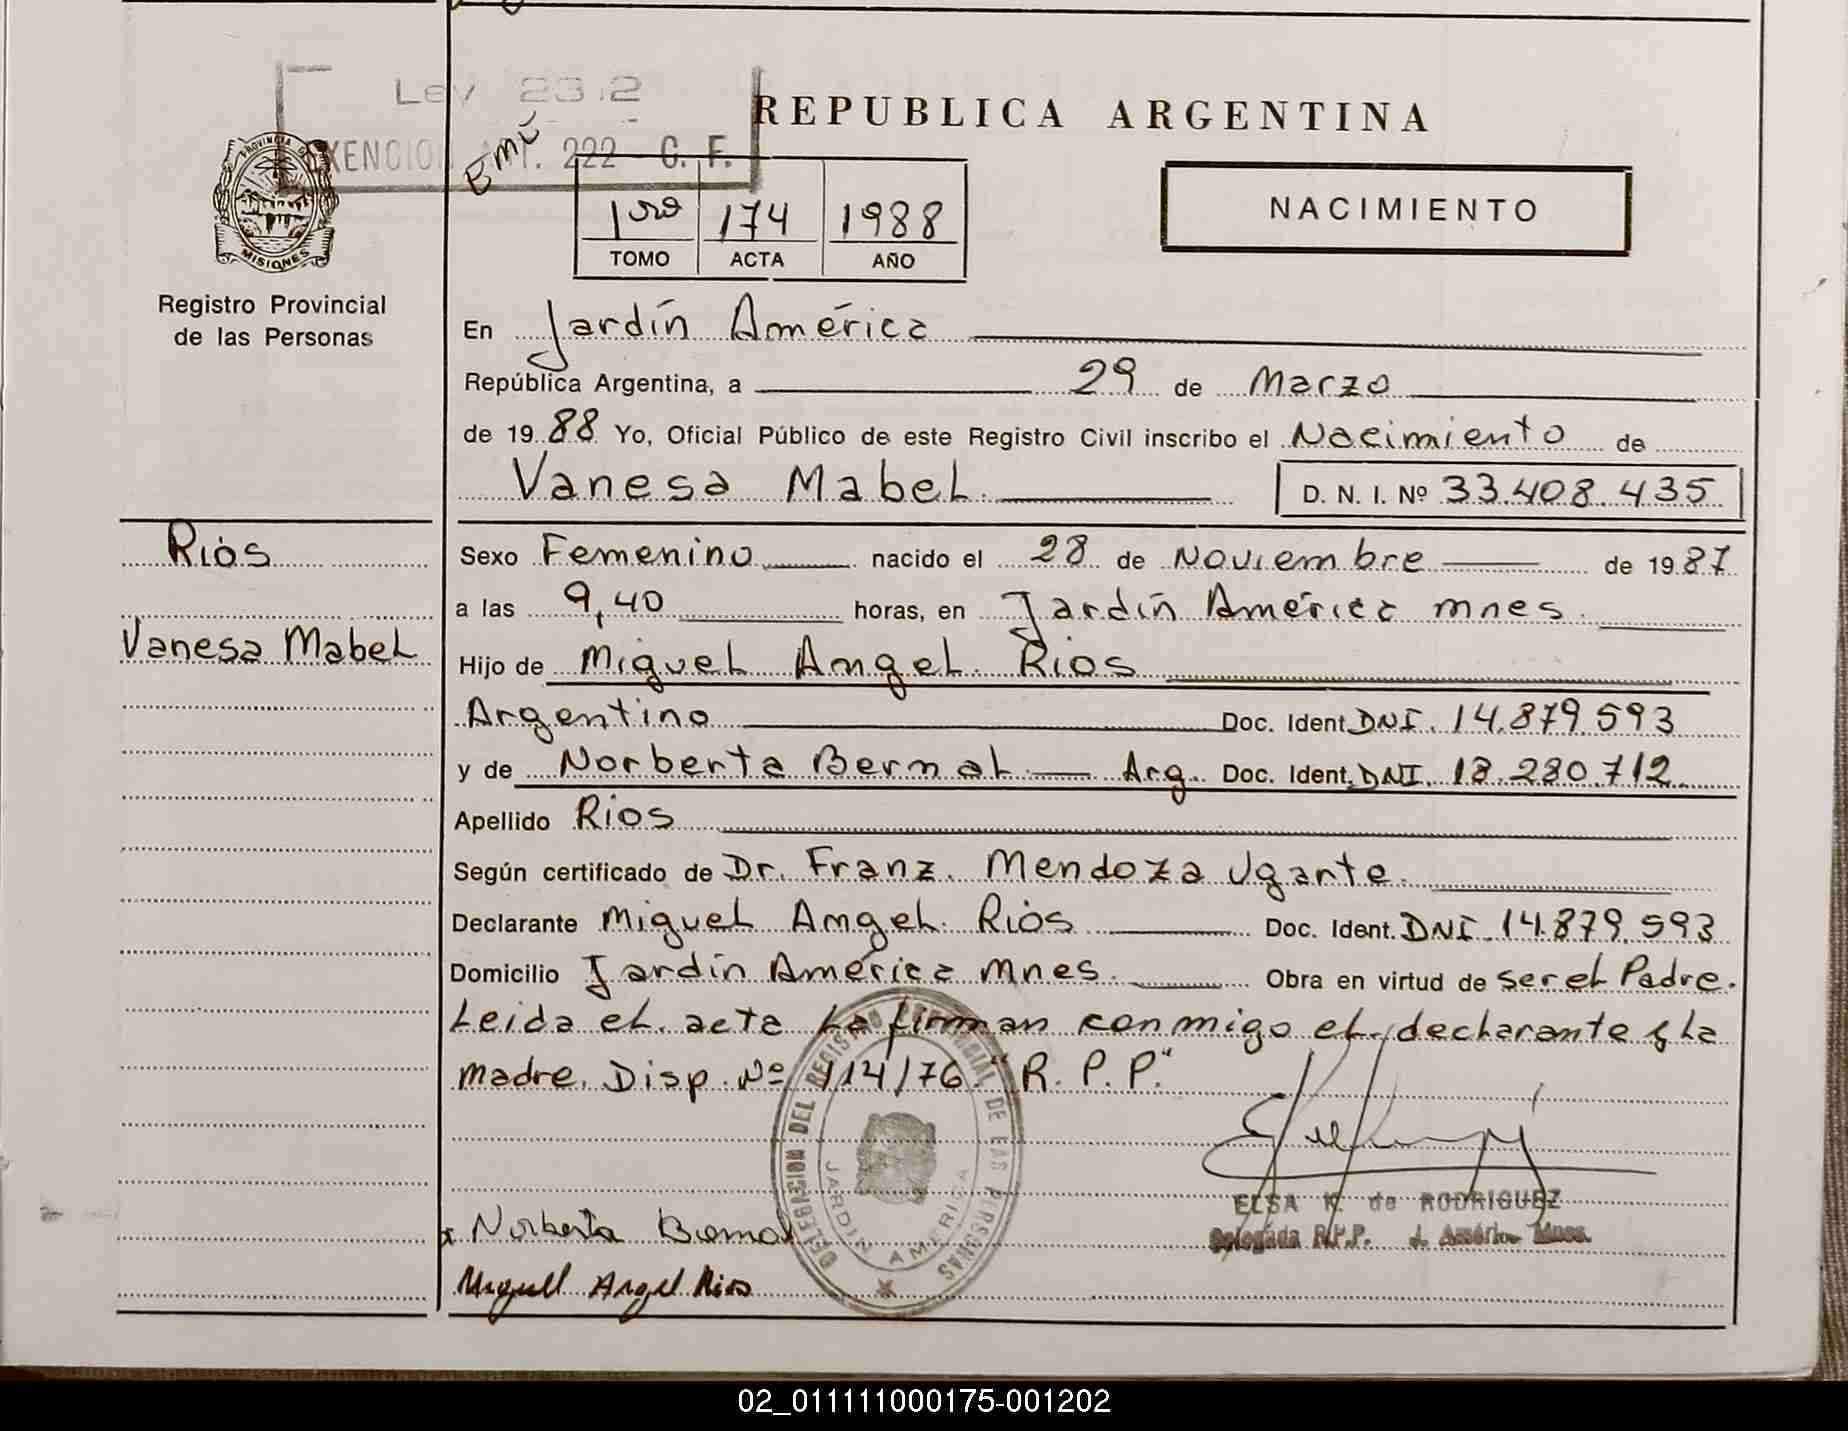 REPUBLICA ARGENTINA
EXENCION ART. 222 C. F.
PROVINCIA DE
MISIONES
Registro Provincial
de las Personas
1ro 174 1988
TOMO ACTA AÑO
NACIMIENTO
En Jardín América
República Argentina, a 29 de Marzo
de 1988 Yo, Oficial Público de este Registro Civil inscribo el Nacimiento de
Vanesa Mabel D. N. I. Nº 33.408.435
Ríos
Vanesa Mabel
Sexo Femenino nacido el 28 de Noviembre de 1987
a las 9,40 horas, en Jardín América mnes.
Hijo de Miguel Angel Ríos
Argentino Doc. Ident. DNI. 14.879.593
y de Norberta Bernal Arg. Doc. Ident. DNI. 18.280.712
Apellido Ríos
Según certificado de Dr. Franz. Mendoza Ugarte.
Declarante Miguel Angel Ríos Doc. Ident. DNI 14.879.593
Domicilio Jardín América Mnes. Obra en virtud de ser el Padre.
Leida el acta La firman conmigo el declarante y La
madre. Disp. Nº 114/76 "R. P. P."
DELEGACION DEL REGISTRO PROVINCIAL DE LAS PERSONAS
JARDIN AMERICA
ELSA K. de RODRIGUEZ
Delegada R.P.P. J. América Mnes.
x Norberta Bernal
Miguel Angel Rios
02_011111000175-001202